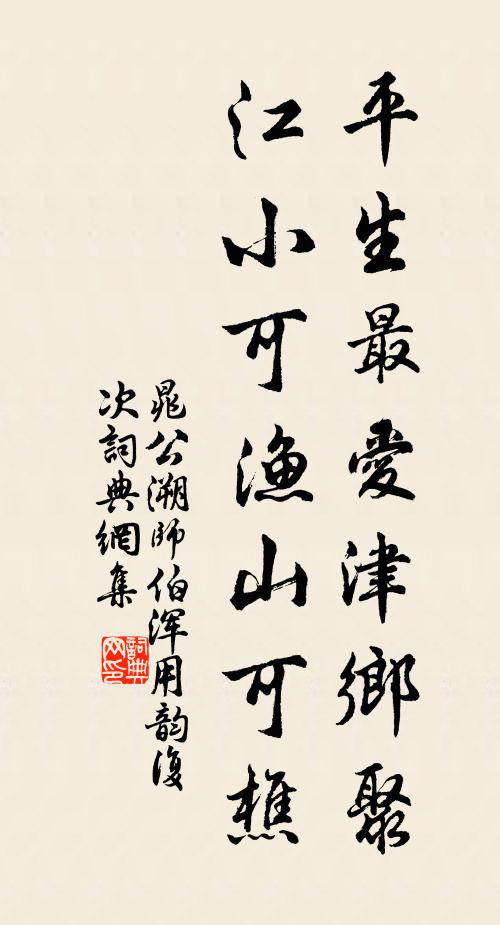 平生最愛津鄉聚
江小可漁山可樵
晁公溯師伯渾用韵復
次詞典網集
詞典网印